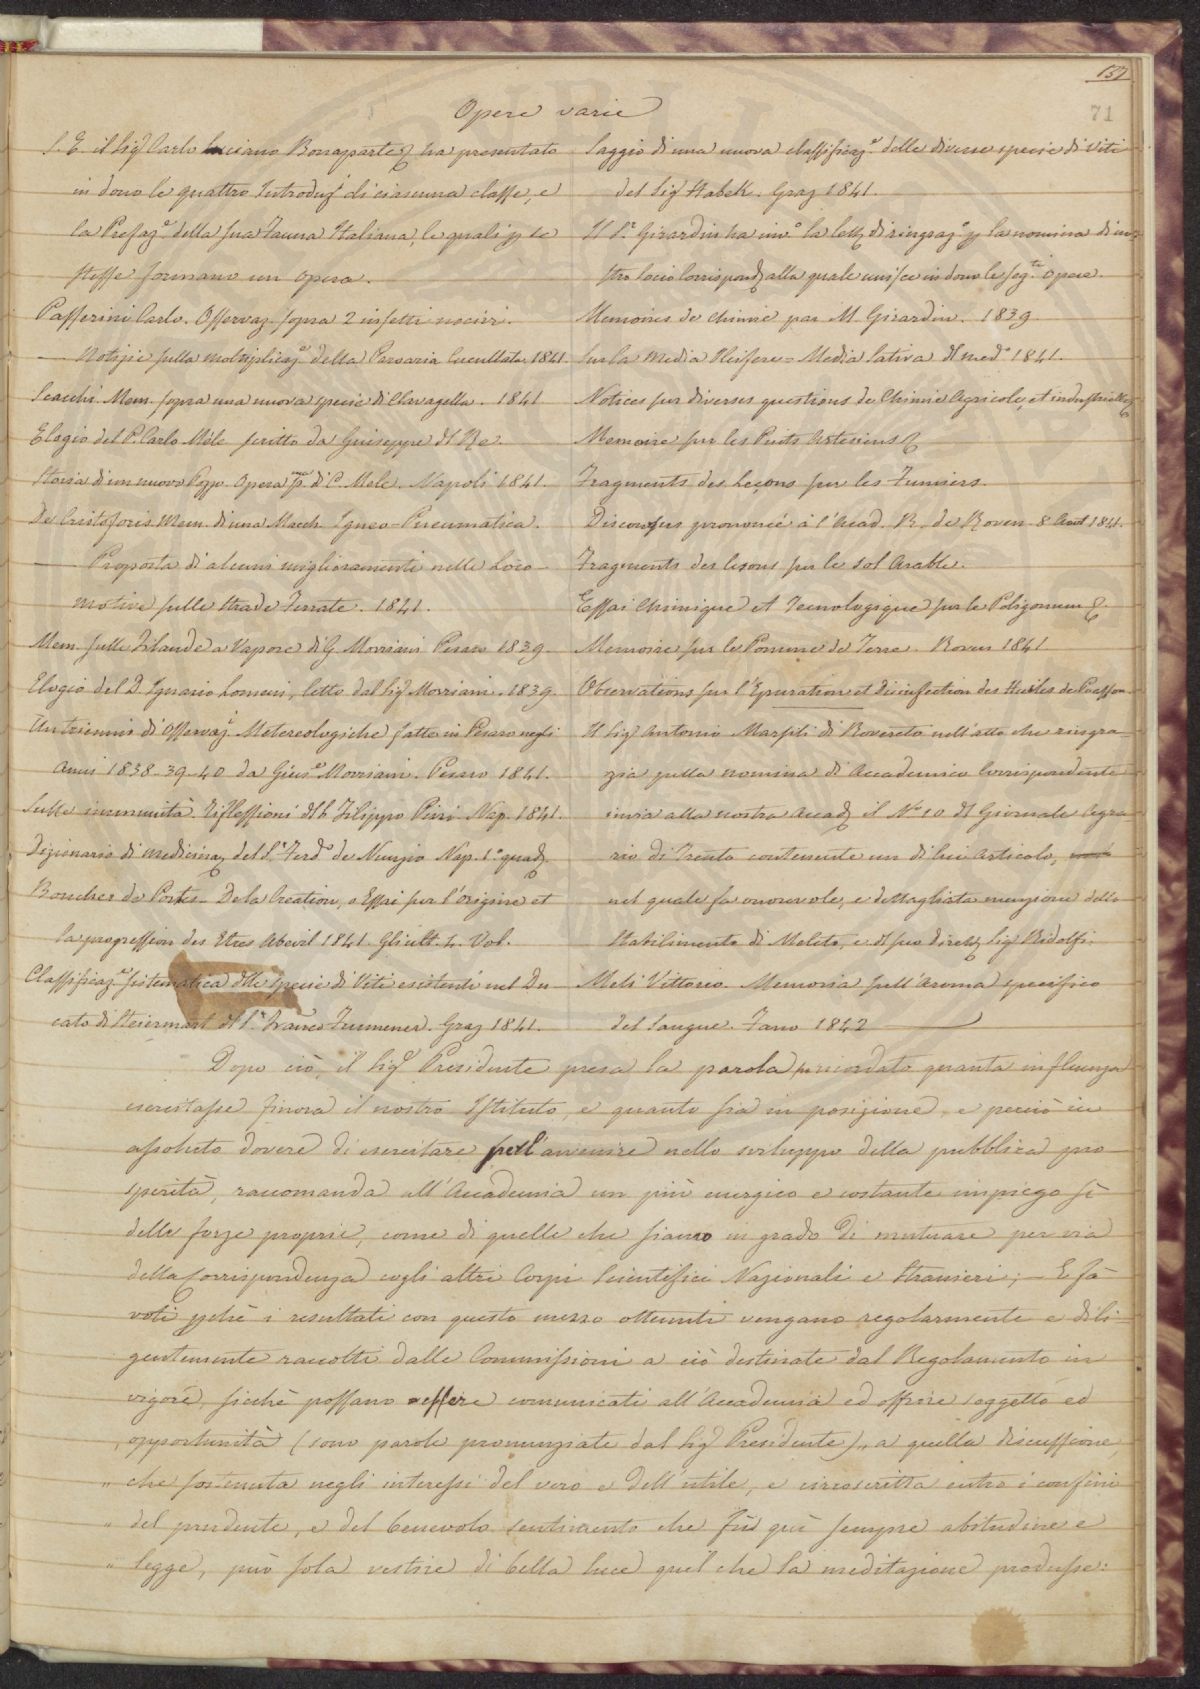 137
71
Opere varie
S. E. il Sig.r Carlo Luciano Bonaparte ha presentato
in dono le quattro Introduz.i di ciascuna classe, e
la Prefaz.e della sua Fauna Italiana, le quali p se
stesse formano un opera.
Passerini Carlo. Osservaz. sopra 2 insetti nocivi.
— Notizie sulla moltiplicaz.e della Paroaria Cucullata. 1841.
Scacchi. Mem. sopra una nuova specie di Clavagella. 1841
Elogio del P. Carlo Mele scritto da Guiseppe del Re.
Storia di un nuovo Pozzo. Opera di C. Mele. Napoli 1841.
De Cristoforis Mem. di una Macch. Igneo-Pneumatica.
— Proposta di alcuni miglioramenti nelle Loco-
motive sulle strade Ferrate. 1841.
Mem. sulle Filande a Vapore di G. Morriani Pesaro 1839.
Elogio del D. Ignazio Lomeni, letto dal Sig. Morriani. 1839.
Un triennio di Osservaz.i Metereologiche fatte in Pesaro negli
Anni 1838. 39. 40 da Gius.e Morriani. Pesaro 1841.
Sulle immunità. Riflessioni di Filippo Pirri. Nap. 1841.
Dizionario di medicina del S.r Ferd.o de Nunzio Nap. 1.o quad.
Boucher de Pertes. De la Creation, o Essai sur l'origine et
la progression des Etres Abevil 1841. Gli ult. 4. Vol.
Classificaz.e sistematica delle specie di Viti esistenti nel Du-
cato di Steiermark del S.r Franco Trummer. Graz 1841.
Saggio di una nuova classificaz.e delle diverse specie di Viti
del Sig.r Habek. Graz 1841.
Il S.r Girardin ha inv.o la lett. di ringraz.o p la nomina di no-
stro Socio Corrispond. alla quale unisce in dono le seg.ti Opere.
Memoires de Chimie par M. Girardin. 1839.
Sur la Media Oleifere = Media Sativa del Med.o 1841.
Notices sur diverses questions de Chimie Agricole, et industrielle
Memoire sur les Puits Artesiens
Fragments des Leçons sur les Fumiers.
Discours prononcé à l'Acad. R. de Roven 8 Aout 1841.
Fragments des leçons sur le sol Arable.
Essai Chimique et Tecnologique sur le Poligonum &.
Memoire sur le Pomme de Terre. Roven 1841
Observations sur l'Epuration et desinfection des Huiles de Poisson
Il Sig.r Antonio Marsili di Rovereto nell'atto che ringra-
zia sulla nomina di Accademico Corrispondente
invia alla nostra Accad. il N.o 10 del Giornale Agra-
rio di Trento contenente un di lui Articolo,
nel quale fa onorevole, e dettagliata menzione dello
Stabilimento di Meleto, e del suo Dirett. Sig. Ridolfi.
Meli Vittorio. Memoria sull'Aroma specifico
del Sangue. Fano 1842
Dopo ciò, il Sig.r Presidente presa la parola, ricordato quanta influenza
esercitasse finora il nostro Istituto, e quanto sia in posizione, e perciò in
assoluto dovere di esercitare per l'avvenire nello sviluppo della pubblica pro-
sperità, raccomanda all'Accademia un più energico e costante impiego sì
delle forze proprie, come di quelle che siamo in grado di mutuare per via
della corrispondenza cogli altri Corpi Scientifici Nazionali e Stranieri; — E fà
voti pchè i resultati con questo mezzo ottenuti vengano regolarmente e dili-
gentemente raccolti dalle Commissioni a ciò destinate dal Regolamento in
vigore, sicchè possano essere comunicati all'Accademia ed offrire soggetto ed
opportunità (sono parole pronunziate dal Sig.r Presidente) „ a quella discussione,
„ che sostenuta negli interessi del vero e dell'utile, e circoscritta entro i confini
„ del prudente, e del benevolo sentimento che fù quì sempre abitudine e
„ legge, può sola vestire di bella luce quel che la meditazione produsse: